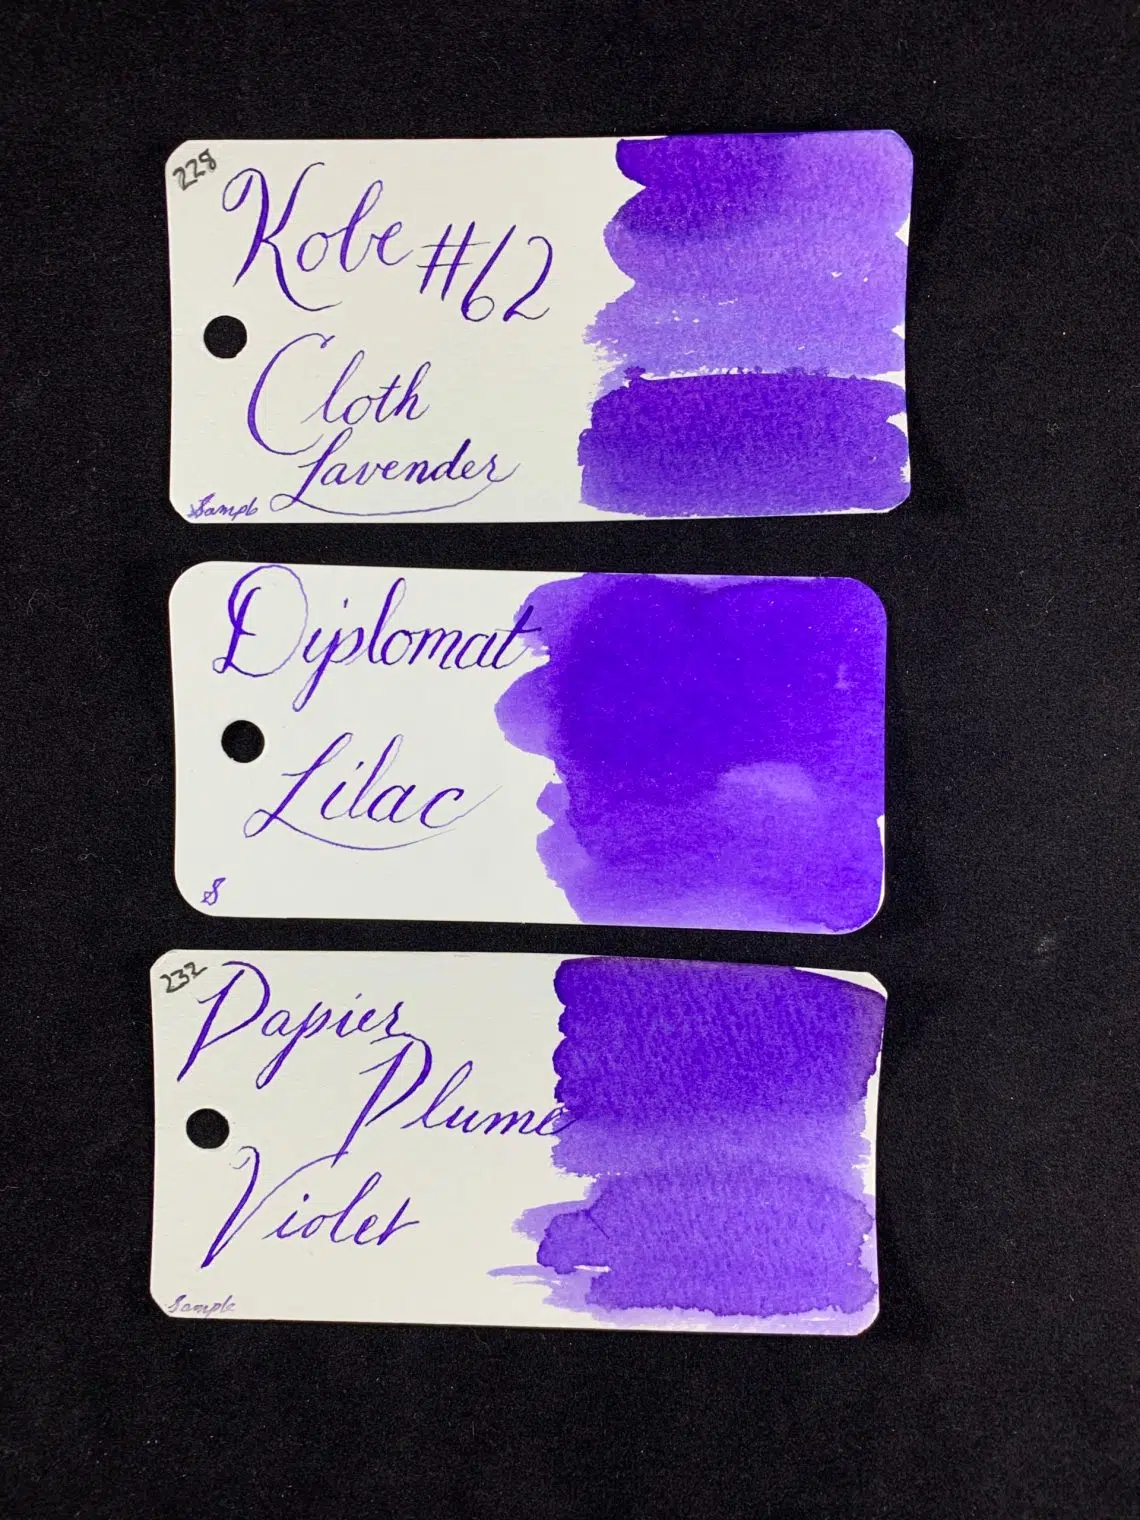 228
Kobe #62
Cloth
Lavender
Sample
Diplomat
Lilac
S
232
Papier
Plume
Violet
Sample